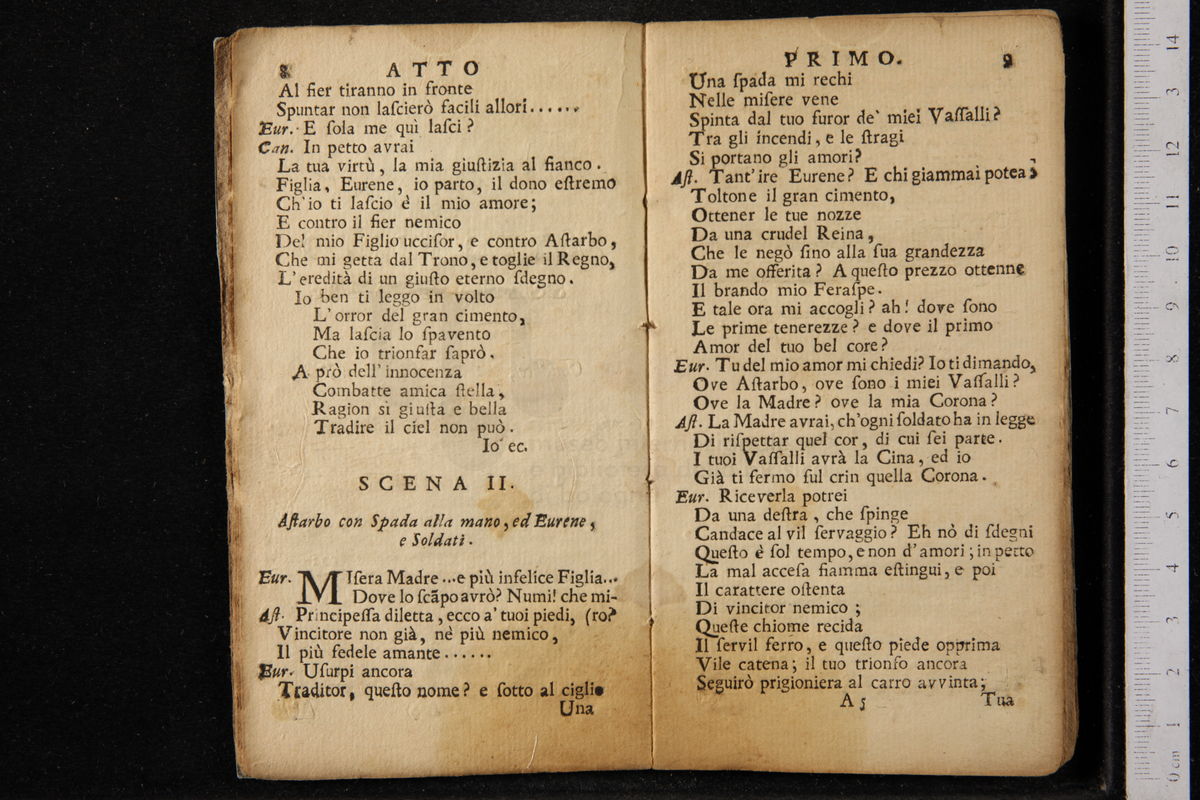 8 ATTO
Al fier tiranno in fronte
Spuntar non laſcierò facili allori......
Eur. E ſola me quì laſci?
Can. In petto avrai
La tua virtù, la mia giuſtizia al fianco.
Figlia, Eurene, io parto, il dono eſtremo
Ch'io ti laſcio è il mio amore;
E contro il fier nemico
Del mio Figlio ucciſor, e contro Aſtarbo,
Che mi getta dal Trono, e toglie il Regno,
L'eredità di un giuſto eterno ſdegno.
Io ben ti leggo in volto
L'orror del gran cimento,
Ma laſcia lo ſpavento
Che io trionfar ſaprò.
A prò dell'innocenza
Combatte amica ſtella,
Ragion sì giuſta e bella
Tradire il ciel non può.
Io ec.
SCENA II.
Aſtarbo con Spada alla mano, ed Eurene,
e Soldati.
Eur. MIſera Madre ...e più infelice Figlia...
Dove lo ſcãpo avrò? Numi! che mi-
Aſt. Principeſſa diletta, ecco a' tuoi piedi, (ro?
Vincitore non già, nè più nemico,
Il più fedele amante......
Eur. Uſurpi ancora
Traditor, queſto nome? e ſotto al ciglio
Una
PRIMO. 9
Una ſpada mi rechi
Nelle miſere vene
Spinta dal tuo furor de' miei Vaſſalli?
Tra gli incendi, e le ſtragi
Si portano gli amori?
Aſt. Tant'ire Eurene? E chi giammai potea,
Toltone il gran cimento,
Ottener le tue nozze
Da una crudel Reina,
Che le negò ſino alla ſua grandezza
Da me offerita? A queſto prezzo ottenne
Il brando mio Feraſpe.
E tale ora mi accogli? ah! dove ſono
Le prime tenerezze? e dove il primo
Amor del tuo bel core?
Eur. Tu del mio amor mi chiedi? Io ti dimando,
Ove Aſtarbo, ove ſono i miei Vaſſalli?
Ove la Madre? ove la mia Corona?
Aſt. La Madre avrai, ch'ogni ſoldato ha in legge
Di riſpettar quel cor, di cui ſei parte.
I tuoi Vaſſalli avrà la Cina, ed io
Già ti fermo ſul crin quella Corona.
Eur. Riceverla potrei
Da una deſtra, che ſpinge
Candace al vil ſervaggio? Eh nò di ſdegni
Queſto è ſol tempo, e non d'amori; in petto
La mal acceſa fiamma eſtingui, e poi
Il carattere oſtenta
Di vincitor nemico;
Queſte chiome recida
Il ſervil ferro, e queſto piede opprima
Vile catena; il tuo trionfo ancora
Seguirò prigioniera al carro avvinta;
A 5 Tua
0 cm 1 2 3 4 5 6 7 8 9 10 11 12 3 14